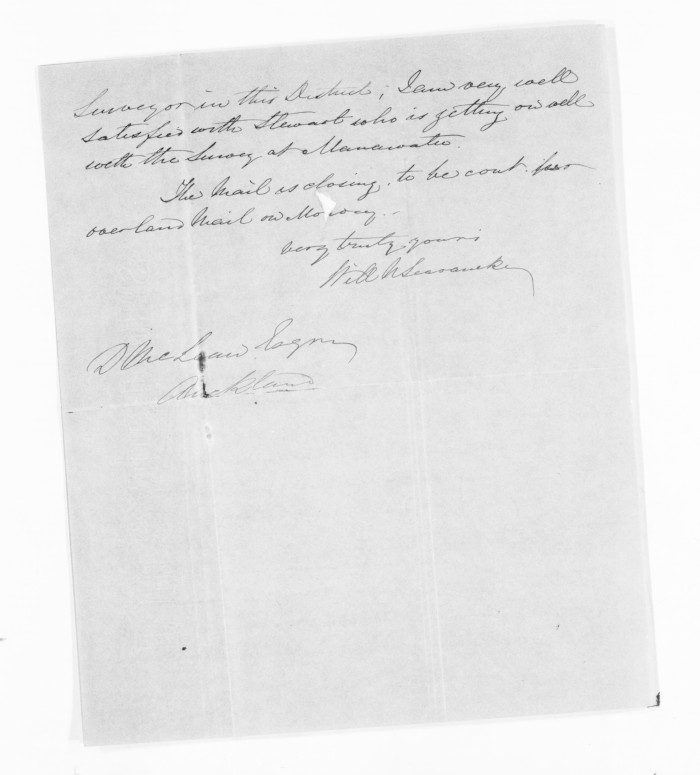 Surveyor in this District; I am very well
satisfied with Stewart who is getting on well
with the Survey at Manawatu.
The Mail is closing, to be cont. per
overland Mail on
very truly yours
Will N Searancke
D McLean Esqre
Auckland